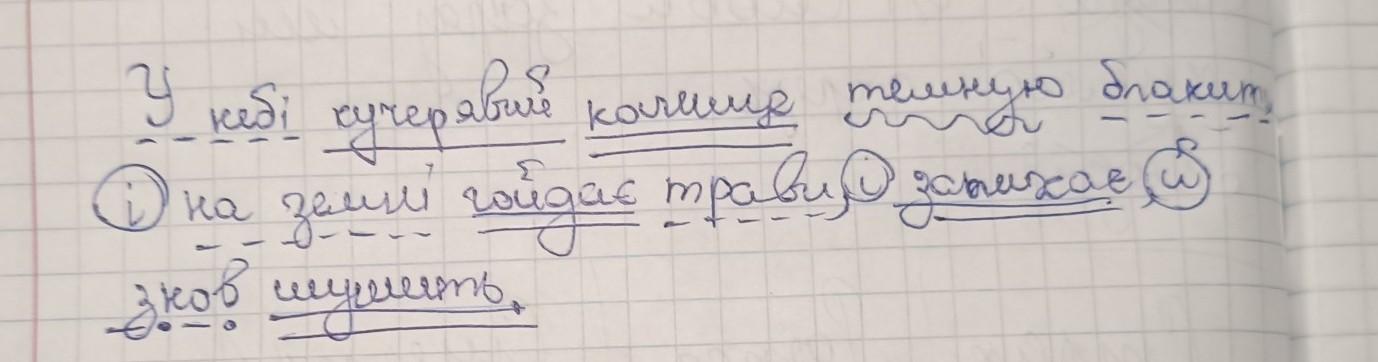 У небі кучерявий колише темную блакит,
і на землі гойдає трави, і затихає, й
знов шумить.